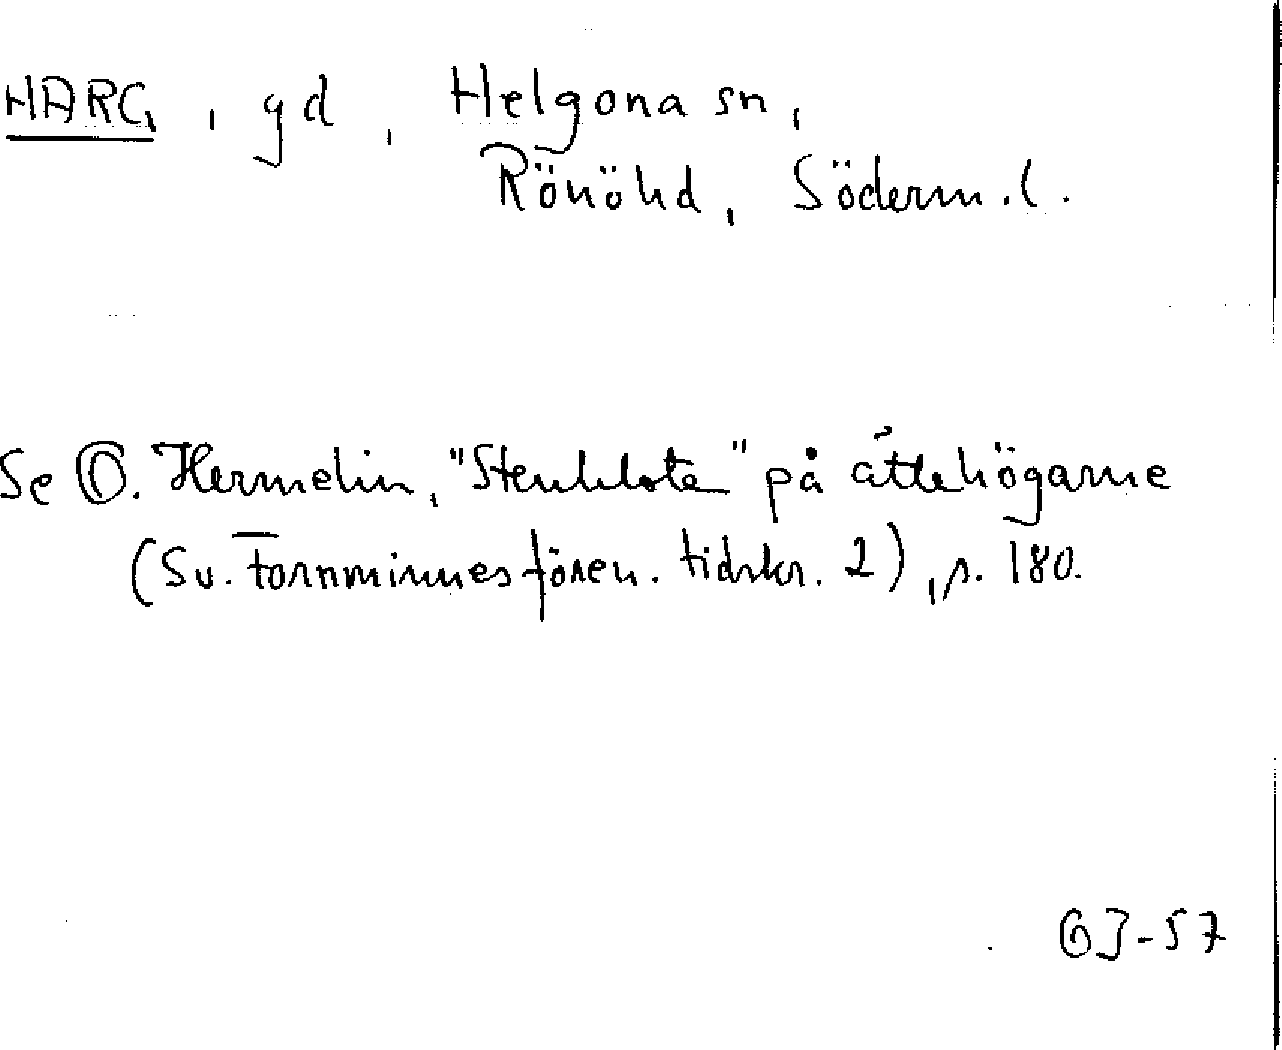 HARG, gd, Helgona sn,
Rönöhd, Söderm.l.
Se O. Hermelin, "Stenklota" på ättehögarne
(Sv. Fornminnesfören. tidskr. 2), s. 180.
GJ-57